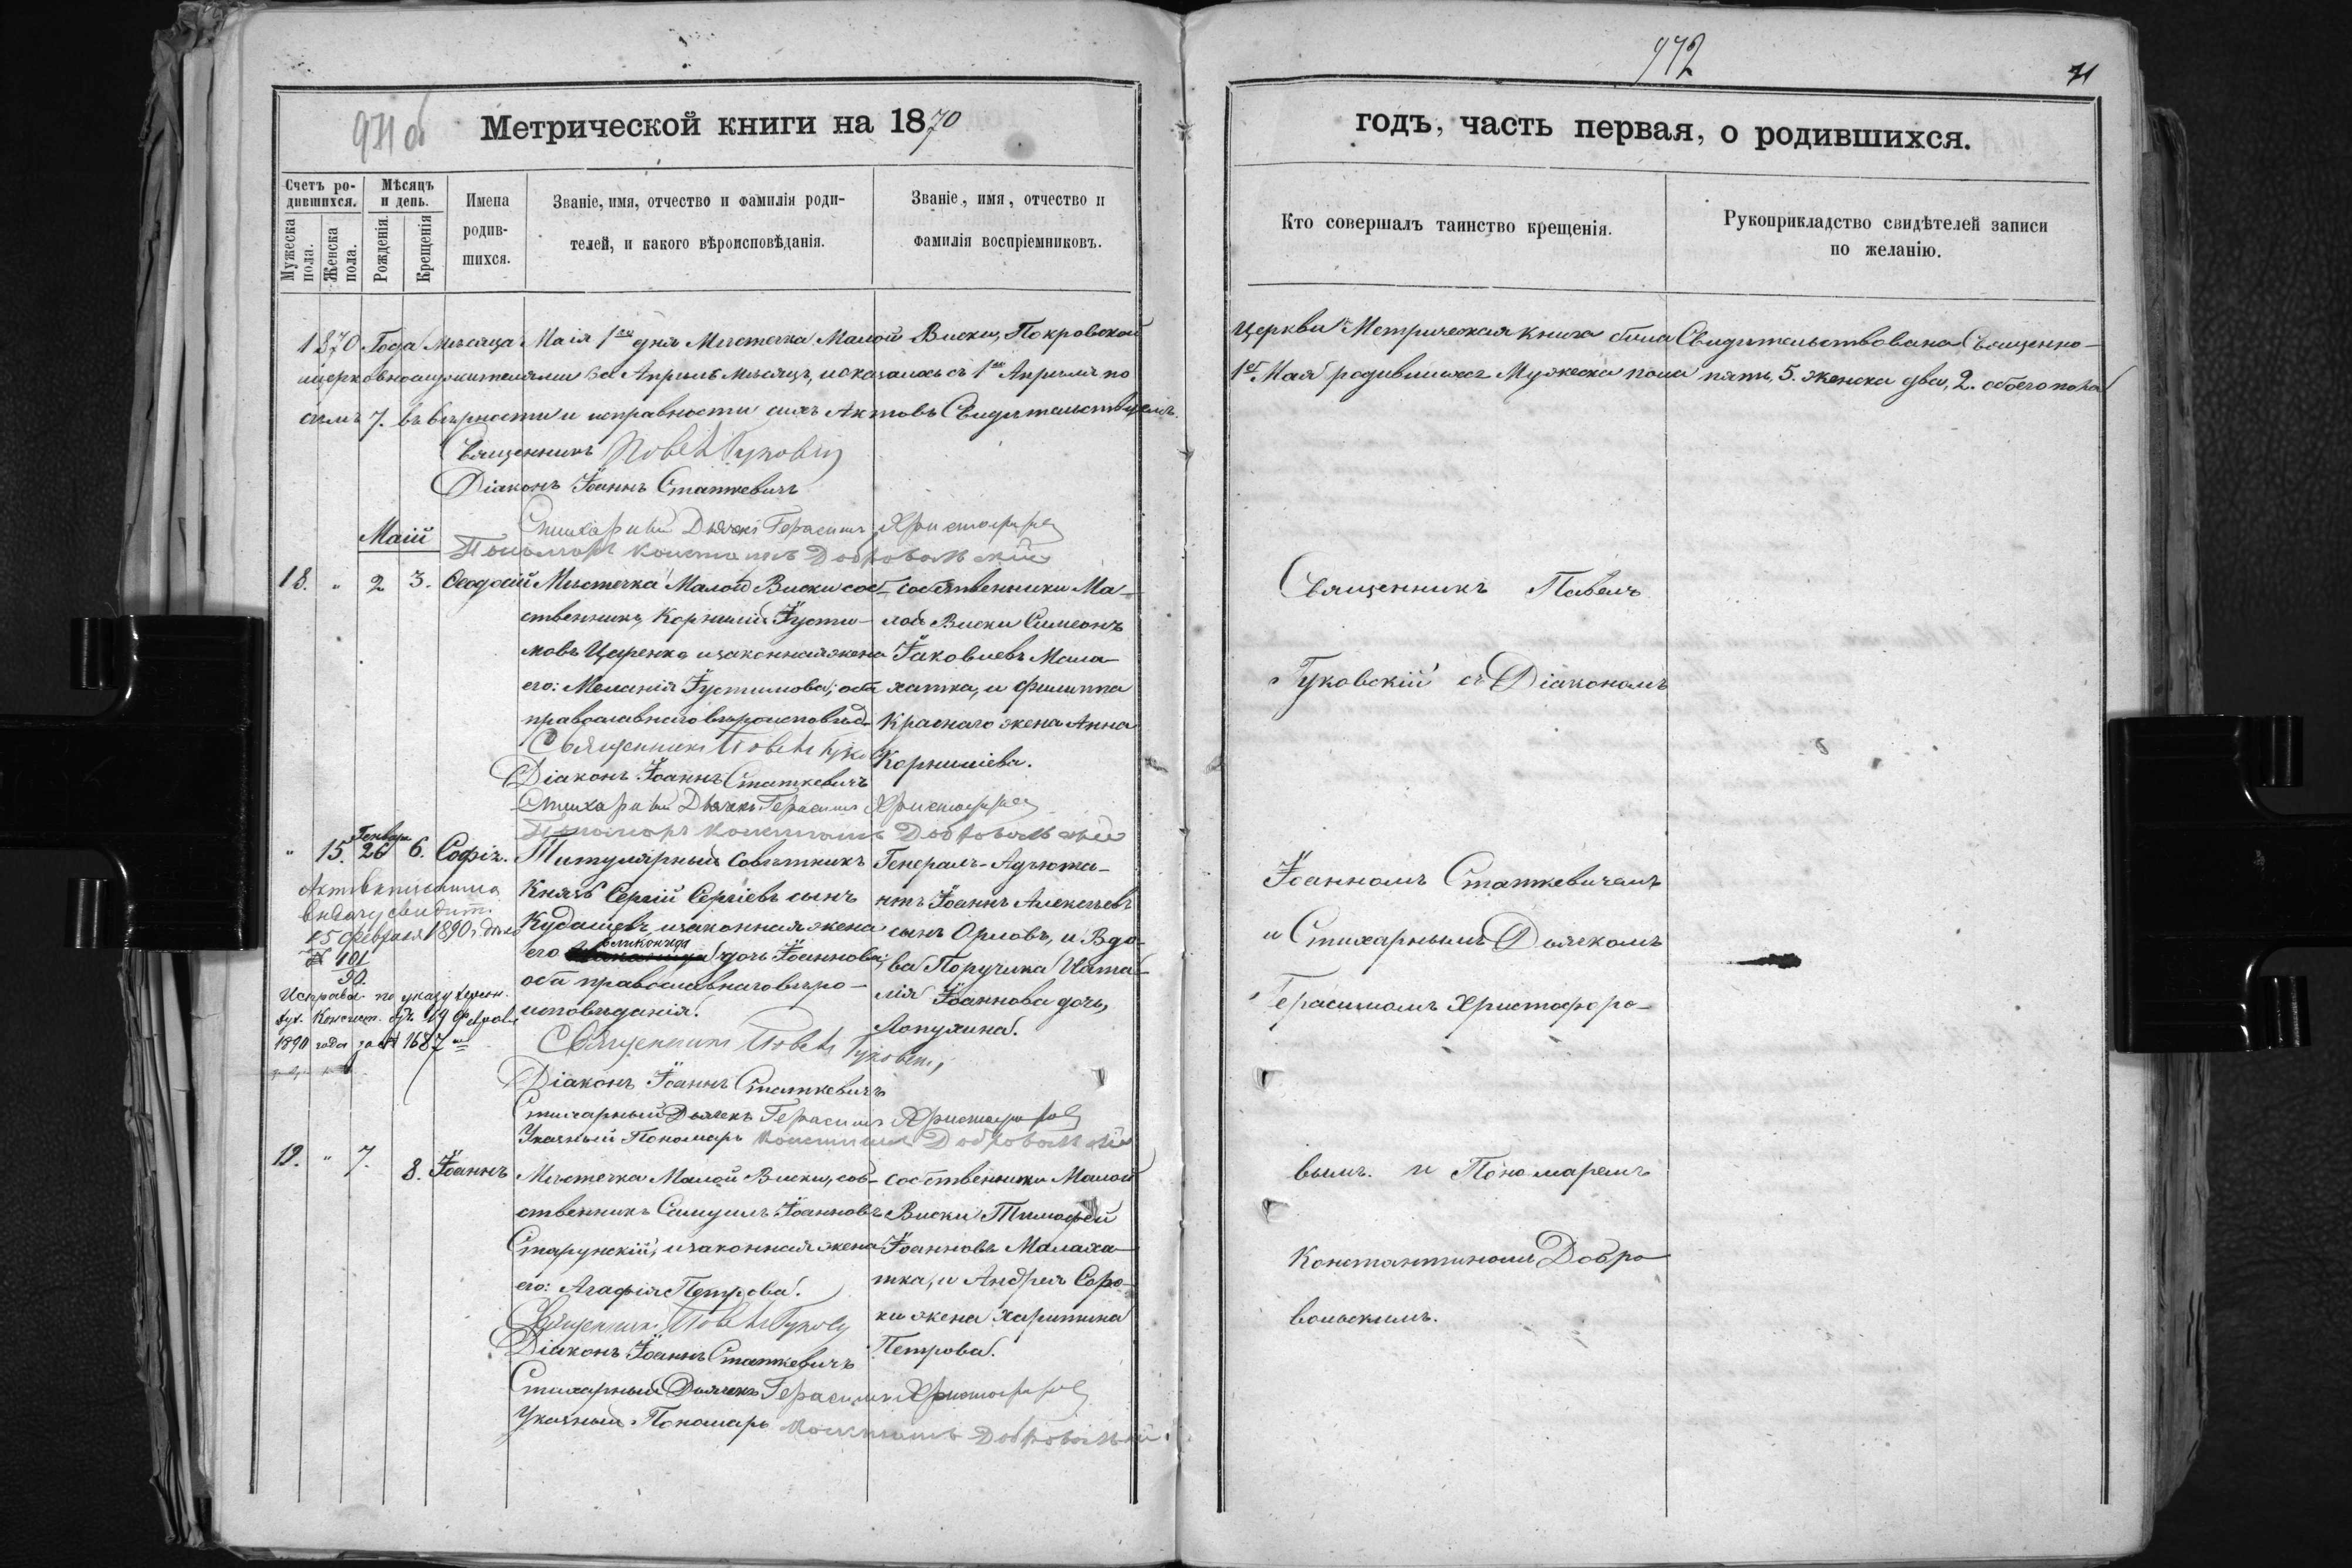 972
71
971об
Метрической книги на 1870
годъ, часть первая, о родившихся.
Счетъ родившихся.
Мужеска пола.
Женска пола.
Мѣсяцъ и день.
Рожденія.
Крещенія
Имена родив-
шихся.
Званіе, имя, отчество и фамилія роди-
телей, и какого вѣроисповѣданія.
Званіе, имя, отчество и
фамилія воспріемниковъ.
Кто совершалъ таинство крещенія.
Рукоприкладство свидѣтелей записи
по желанію.
1870 Года Мѣсяца Маія 1го дня Мѣстечка Малой Виски, Покровской
Церкви Метрическая книга была Свидѣтельствована Священно-
церковнослужителями за Апрѣль мѣсяцъ, и оказалось съ 1го Апрѣля по
1е Мая родившихся Мужеска пола пять, 5. женска два, 2. обоего пола
семь 7. въ вѣрности и исправности сихъ Актовъ Свидѣтельствуемъ.
Священникъ
Діаконъ Іоаннъ Статкевичъ
Стихарный Дьячекъ Герасимъ Христофоровъ
Пономарь Добровольскій
Маій
18. " 2 3. Ѳеодосій
Мѣстечка Малой Виски соб-
ственникъ Корнилій Іусти-
новъ Царенко и законная жена
его: Меланія Іустинова; оба
православнаго вѣроисповѣд.
собственники Ма-
лой Виски Симеонъ
Іаковлевъ Мала-
хатка, и Филиппа
Краснаго жена Анна
Корниліева.
Священникъ
Діаконъ Іоаннъ Статкевичъ
Стихарный Дьячекъ Герасимъ Христофоровъ
Пономарь Добровольскій
" 15. Генваря 26 6. Софія.
Титулярный Совѣтникъ
Князь Сергій Сергіевъ сынъ
Кудашевъ, и законная жена
его дочь Іоаннова;
оба православнаго вѣро-
исповѣданія.
Генералъ-Адъюта-
нтъ Іоаннъ Алексѣевъ
сынъ Орловъ, и Вдо-
ва Поручика Наталія
Іоаннова дочь,
Лопухина.
15 февраля 1890 г.
№ 101
90.
по указу Херсон.
Дух. Консист. отъ 19 Февраля
1890 года за № 1687
Священникъ
Діаконъ Іоаннъ Статкевичъ
Стихарный Дьячекъ Герасимъ Христофоровъ
Указный Пономарь Добровольскій
19. " 7. 8. Іоаннъ
Мѣстечка Малой Виски, соб-
ственникъ Самуилъ Іоанновъ
Старунскій, и законная жена
его: Агафія Петрова.
собственники Малой
Виски Тимофей
Іоанновъ Малаха-
тка, и Андрея Соро-
ки жена Харитина
Петрова.
Священникъ
Діаконъ Іоаннъ Статкевичъ
Стихарный Дьячекъ Герасимъ Христофоровъ
Указный Пономарь Добровольскій
Священникъ Павелъ
Гуковскій съ Діакономъ
Іоанномъ Статкевичемъ
и Стихарнымъ Дьячкомъ
Герасимомъ Христофоро-
вымъ. и Пономаремъ
Константиномъ Добро-
вольскимъ.